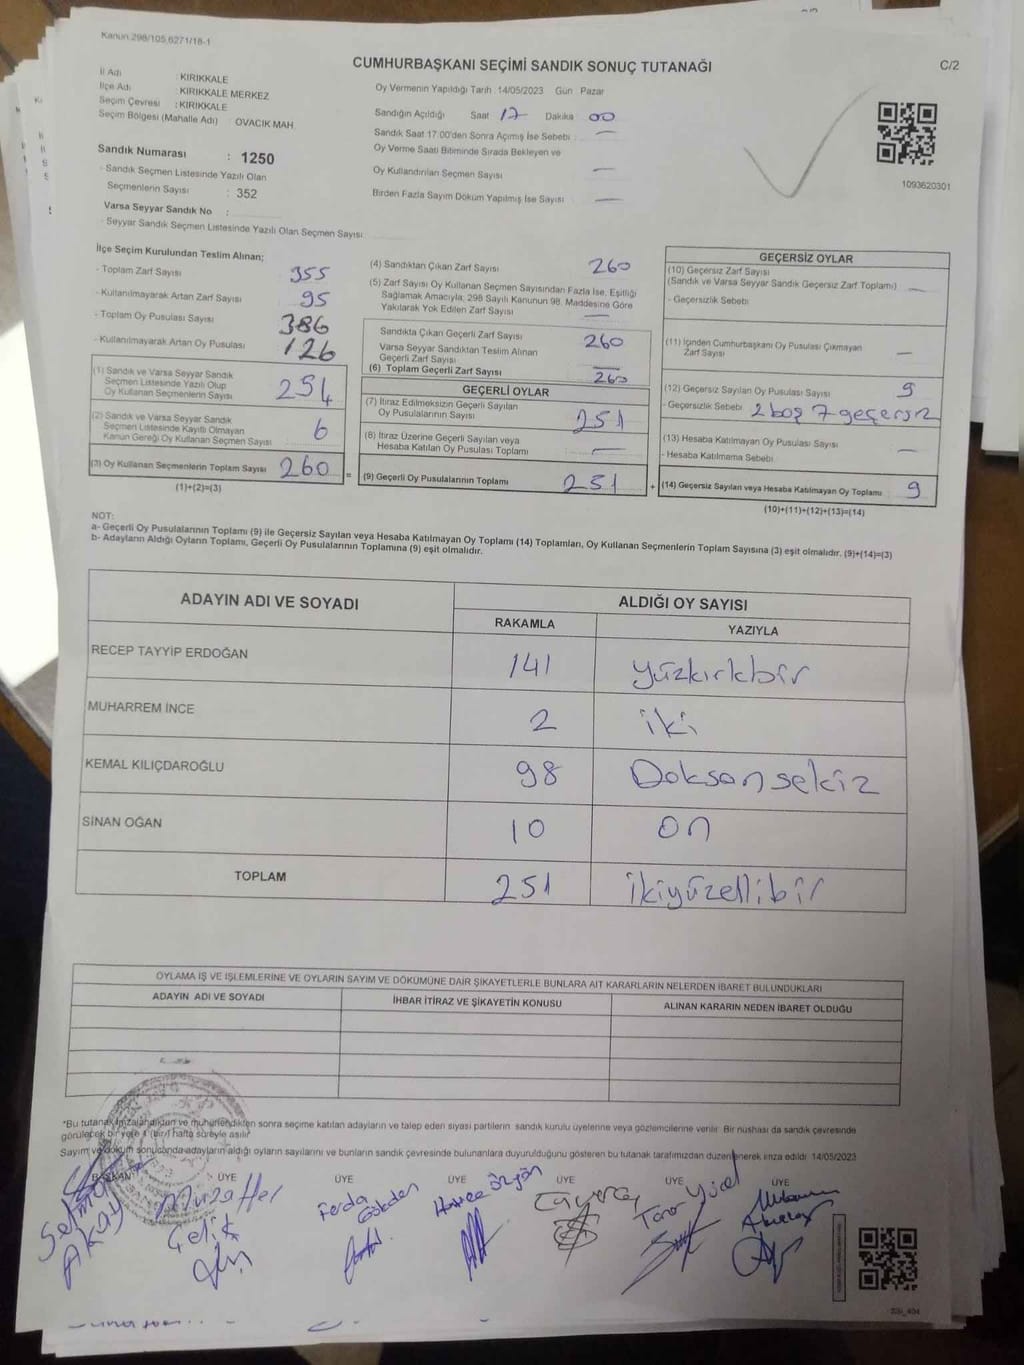 Kanun 298/105,6271/18-1
CUMHURBAŞKANI SEÇİMİ SANDIK SONUÇ TUTANAĞI
C/2
İl Adı : KIRIKKALE
İlçe Adı : KIRIKKALE MERKEZ
Seçim Çevresi : KIRIKKALE
Seçim Bölgesi (Mahalle Adı) : OVACIK MAH.
Sandık Numarası : 1250
- Sandık Seçmen Listesinde Yazılı Olan
Seçmenlerin Sayısı : 352
Varsa Seyyar Sandık No :
- Seyyar Sandık Seçmen Listesinde Yazılı Olan Seçmen Sayısı
Oy Vermenin Yapıldığı Tarih 14/05/2023 Gün Pazar
Sandığın Açıldığı Saat 17 Dakika 00
Sandık Saat 17.00'den Sonra Açımış İse Sebebi : —
Oy Verme Saati Bitiminde Sırada Bekleyen ve
Oy Kullandırılan Seçmen Sayısı —
Birden Fazla Sayım Döküm Yapılmış İse Sayısı —
1093620301
İlçe Seçim Kurulundan Teslim Alınan;
- Toplam Zarf Sayısı 355
- Kullanılmayarak Artan Zarf Sayısı 95
- Toplam Oy Pusulası Sayısı 386
- Kullanılmayarak Artan Oy Pusulası 126
(1) Sandık ve Varsa Seyyar Sandık
Seçmen Listesinde Yazılı Olup
Oy Kullanan Seçmenlerin Sayısı 254
(2) Sandık ve Varsa Seyyar Sandık
Seçmen Listesinde Kayıtlı Olmayan
Kanun Gereği Oy Kullanan Seçmen Sayısı 6
(3) Oy Kullanan Seçmenlerin Toplam Sayısı 260 =
(1)+(2)=(3)
(4) Sandıktan Çıkan Zarf Sayısı 260
(5) Zarf Sayısı Oy Kullanan Seçmen Sayısından Fazla İse, Eşitliği
Sağlamak Amacıyla, 298 Sayılı Kanunun 98. Maddesine Göre
Yakılarak Yok Edilen Zarf Sayısı —
Sandıkta Çıkan Geçerli Zarf Sayısı 260
Varsa Seyyar Sandıktan Teslim Alınan
Geçerli Zarf Sayısı —
(6) Toplam Geçerli Zarf Sayısı 260
GEÇERLİ OYLAR
(7) İtiraz Edilmeksizin Geçerli Sayılan
Oy Pusulalarının Sayısı 251
(8) İtiraz Üzerine Geçerli Sayılan veya
Hesaba Katılan Oy Pusulası Toplamı —
(9) Geçerli Oy Pusulalarının Toplamı 251 +
GEÇERSİZ OYLAR
(10) Geçersiz Zarf Sayısı
(Sandık ve Varsa Seyyar Sandık Geçersiz Zarf Toplamı) —
- Geçersizlik Sebebi
(11) İçinden Cumhurbaşkanı Oy Pusulası Çıkmayan
Zarf Sayısı —
(12) Geçersiz Sayılan Oy Pusulası Sayısı 9
- Geçersizlik Sebebi 2 boş 7 geçersiz
(13) Hesaba Katılmayan Oy Pusulası Sayısı —
- Hesaba Katılmama Sebebi
(14) Geçersiz Sayılan veya Hesaba Katılmayan Oy Toplamı 9
(10)+(11)+(12)+(13)=(14)
NOT:
a- Geçerli Oy Pusulalarının Toplamı (9) ile Geçersiz Sayılan veya Hesaba Katılmayan Oy Toplamı (14) Toplamları, Oy Kullanan Seçmenlerin Toplam Sayısına (3) eşit olmalıdır. (9)+(14)=(3)
b- Adayların Aldığı Oyların Toplamı, Geçerli Oy Pusulalarının Toplamına (9) eşit olmalıdır.
ADAYIN ADI VE SOYADI
ALDIĞI OY SAYISI
RAKAMLA YAZIYLA
RECEP TAYYİP ERDOĞAN 141 yüzkırkbir
MUHARREM İNCE 2 iki
KEMAL KILIÇDAROĞLU 98 Doksansekiz
SİNAN OĞAN 10 on
TOPLAM 251 ikiyüzellibir
OYLAMA İŞ VE İŞLEMLERİNE VE OYLARIN SAYIM VE DÖKÜMÜNE DAİR ŞİKAYETLERLE BUNLARA AİT KARARLARIN NELERDEN İBARET BULUNDUKLARI
ADAYIN ADI VE SOYADI İHBAR İTİRAZ VE ŞİKAYETİN KONUSU ALINAN KARARIN NEDEN İBARET OLDUĞU
*Bu tutanak imzalandıktan ve mühürlendikten sonra seçime katılan adayların ve talep eden siyasi partilerin sandık kurulu üyelerine veya gözlemcilerine verilir. Bir nushası da sandık çevresinde
görülecek bir yere 1 (bir) hafta süreyle asılır.
Sayım ve döküm sonucunda adayların aldığı oyların sayılarını ve bunların sandık çevresinde bulunanlara duyurulduğunu gösteren bu tutanak tarafımızdan düzenlenerek imza edildi. 14/05/2023
BAŞKAN ÜYE ÜYE ÜYE ÜYE ÜYE ÜYE
Selma Akay
Muzaffer Çelik
Ferda Gökden